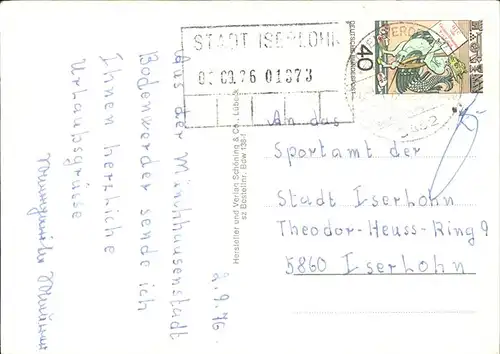 STADT ISERLOHN
03.09.76 01373
DEUTSCHE BUNDESPOST
40
2.9.76.
Aus der Münchhausenstadt
Bodenwerder sende ich
Ihnen herzliche
Urlaubsgrüsse
Hersteller und Verlag Schöning & Co., Lübeck
sz Bestellnr. Bow 138-f
An das
Sportamt der
Stadt Iserlohn
Theodor-Heuss-Ring 9
5860 Iserlohn